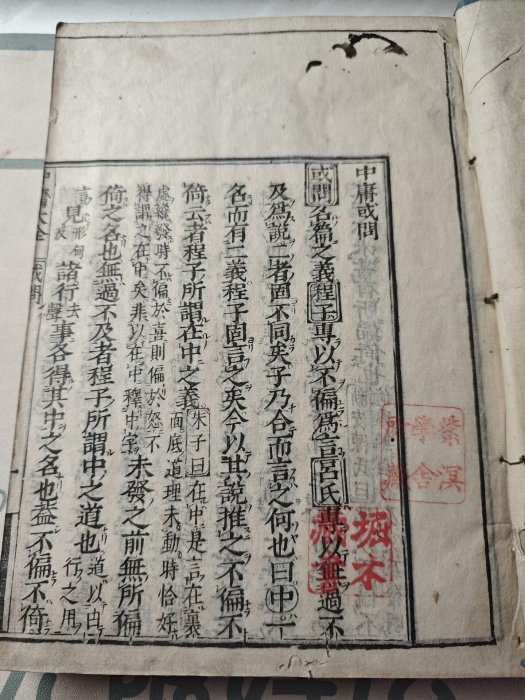 中庸或問
或問名篇之義程子專以不偏爲言呂氏專以無過不
及爲說二者固不同矣子乃合而言之何也曰中一
名而有二義程子固言之矣今以其說推之不偏不
倚云者程子所謂在中之義朱子曰在中是言在裏面底道理未動時恰好
處纔發時不偏於喜則偏於怒不得謂之在中矣非以在中釋中字未發之前無所偏
倚之名也無過不及者程子所謂中之道也道以由行之用
言見形甸反諸行去聲事各得其中之名也蓋不偏不倚
中庸大全 或問
紫溟
學舍
堀木